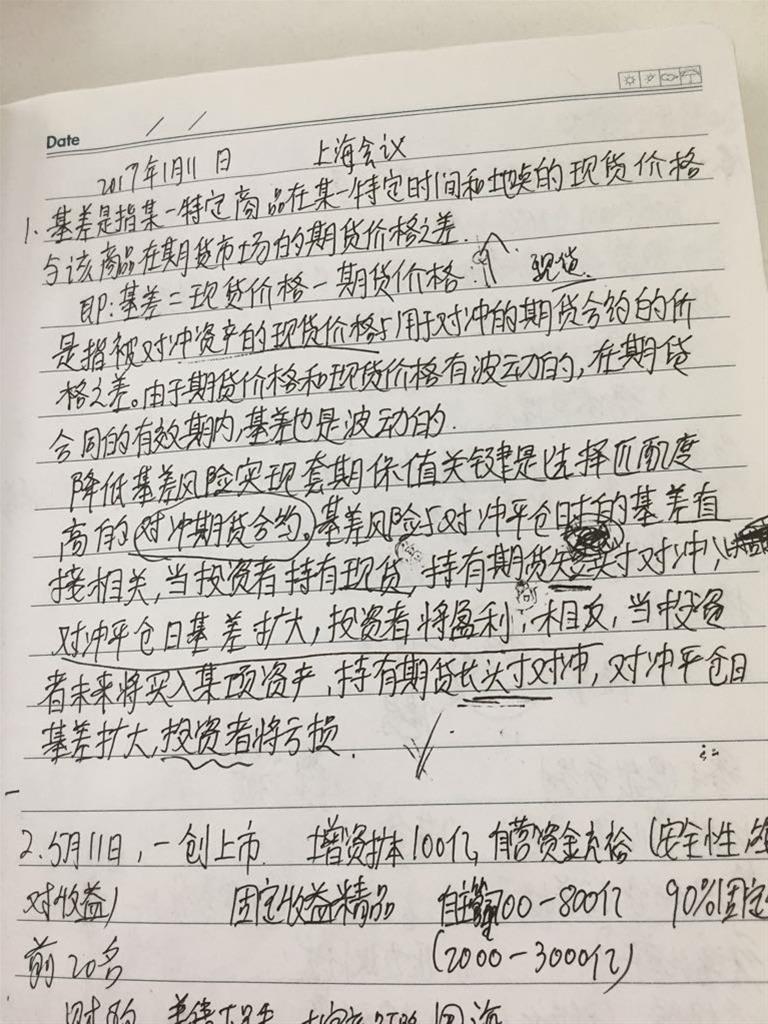 Date / /
2017年1月11日 上海会议
1、基差是指某一特定商品在某一特定时间和地点的现货价格
与该商品在期货市场的期货价格之差.
即:基差=现货价格-期货价格. 现货.
是指被对冲资产的现货价格与用于对冲的期货合约的价
格之差。由于期货价格和现货价格有波动的,在期货
合同的有效期内,基差也是波动的.
降低基差风险实现套期保值关键是选择匹配度
高的对冲期货合约。基差风险与对冲平仓日时的基差直
接相关,当投资者持有现货,持有期货短头寸对冲,
对冲平仓日基差扩大,投资者将盈利;相反,当投资
者未来将买入某项资产,持有期货长头寸对冲,对冲平仓日
基差扩大,投资者将亏损.
2.5月11日,一创上市. 增资扩本100亿,自营资金充裕(安全性,
对收益) 固定收益精品 00-800亿 90%固定
前20名 (2000-3000亿)